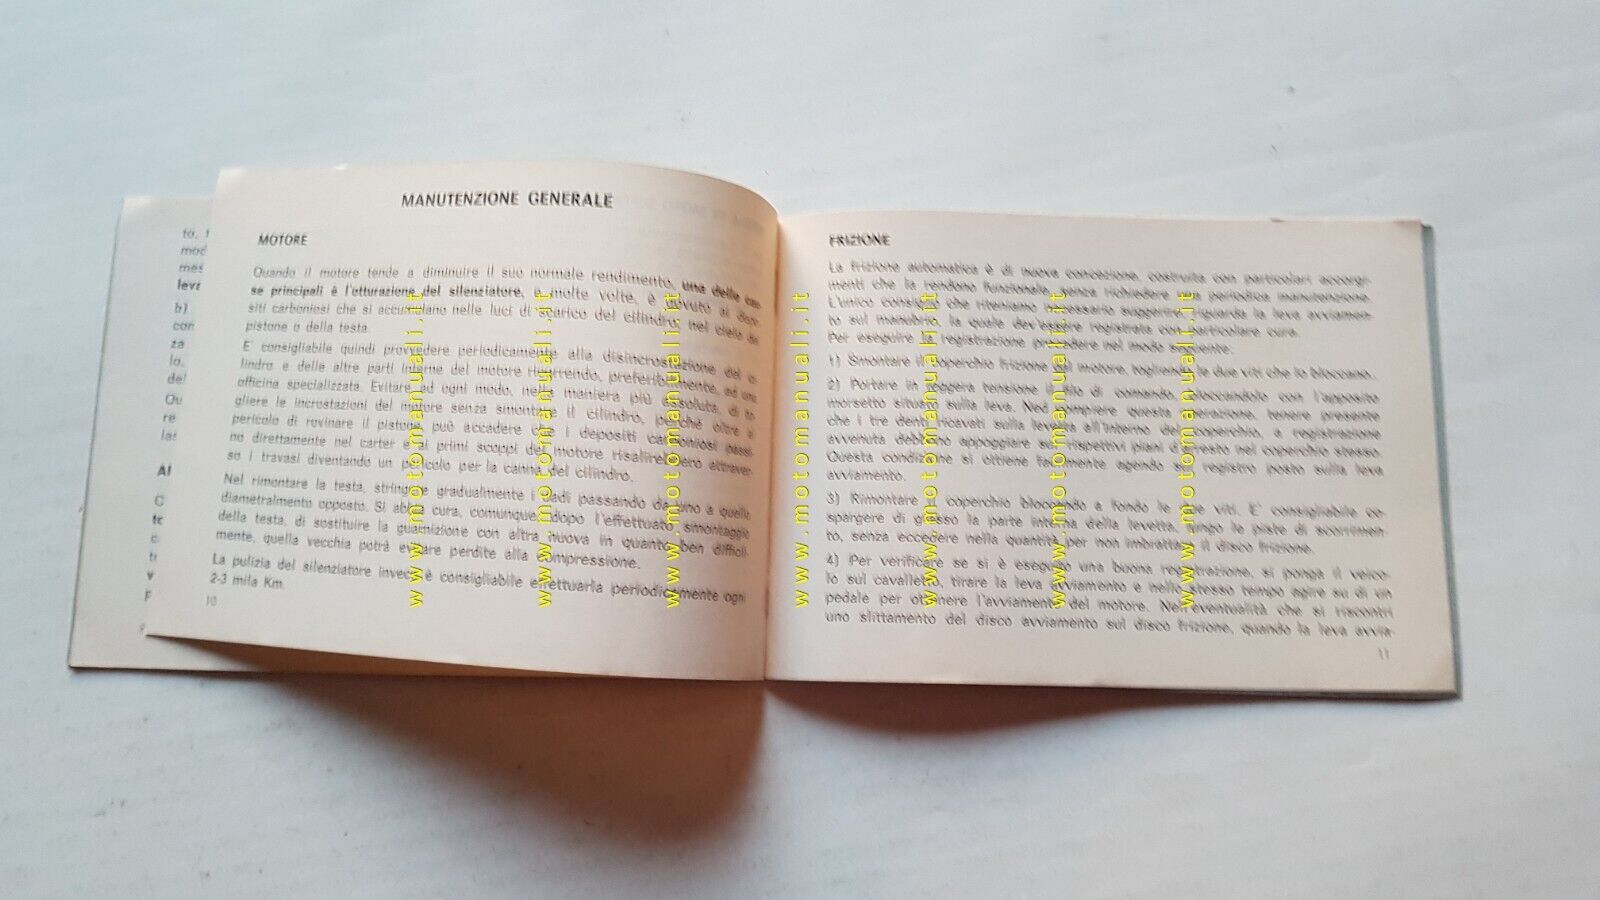 MANUTENZIONE GENERALE
MOTORE
Quando il motore tende a diminuire il suo normale rendimento, una delle cau-
se principali è l'otturazione del silenziatore, e molte volte, è dovuto ai depo-
siti carboniosi che si accumulano nelle luci di scarico del cilindro, nel cielo del
pistone o della testa.
E' consigliabile quindi provvedere periodicamente alla disincrostazione del ci-
lindro e delle altre parti interne del motore ricorrendo, preferibilmente, ad una
officina specializzata. Evitare ad ogni modo, nella maniera più assoluta, di to-
gliere le incrostazioni del motore senza smontare il cilindro, perchè oltre al
pericolo di rovinare il pistone, può accadere che i depositi carboniosi passi-
no direttamente nel carter e ai primi scoppi del motore risalirebbero attraver-
so i travasi diventando un pericolo per la canna del cilindro.
Nel rimontare la testa, stringere gradualmente i dadi passando da uno a quello
diametralmente opposto. Si abbia cura, comunque, dopo l'effettuato smontaggio
della testa, di sostituire la guarnizione con altra nuova in quanto, ben difficil-
mente, quella vecchia potrà evitare perdite alla compressione.
La pulizia del silenziatore invece è consigliabile effettuarla periodicamente ogni
2-3 mila Km.
10
to,
mod
mes
leva
b)
con
za
lo,
FRIZIONE
La frizione automatica è di nuova concezione, costruita con particolari accorgi-
menti che la rendono funzionale, senza richiedere una periodica manutenzione.
L'unico consiglio che riteniamo necessario suggerire, riguarda la leva avviamen-
to sul manubrio, la quale dev'essere registrata con particolare cura.
Per eseguire la registrazione procedere nel modo seguente:
1) Smontare il coperchio frizione del motore, togliendo le due viti che lo bloccano.
2) Portare in leggera tensione il filo di comando, bloccandolo con l'apposito
morsetto situato sulla leva. Nel compiere questa operazione, tenere presente
che i tre denti ricavati sulla levetta all'interno del coperchio, a registrazione
avvenuta debbono appoggiare sui rispettivi piani d'arresto nel coperchio stesso.
Questa condizione si ottiene facilmente agendo sul registro posto sulla leva
avviamento.
3) Rimontare il coperchio bloccando a fondo le due viti. E' consigliabile co-
spargere di grasso la parte interna della levetta, lungo le piste di scorrimen-
to, senza eccedere nella quantità per non imbrattare il disco frizione.
4) Per verificare se si è eseguito una buona registrazione, si ponga il veico-
lo sul cavalletto, tirare la leva avviamento e nello stesso tempo agire su di un
pedale per ottenere l'avviamento del motore. Nell'eventualità che si riscontri
uno slittamento del disco avviamento sul disco frizione, quando la leva avvia-
11
www.motomanuali.it
www.motomanuali.it
www.motomanuali.it
www.motomanuali.it
www.motomanuali.it
www.motomanuali.it
www.motomanuali.it